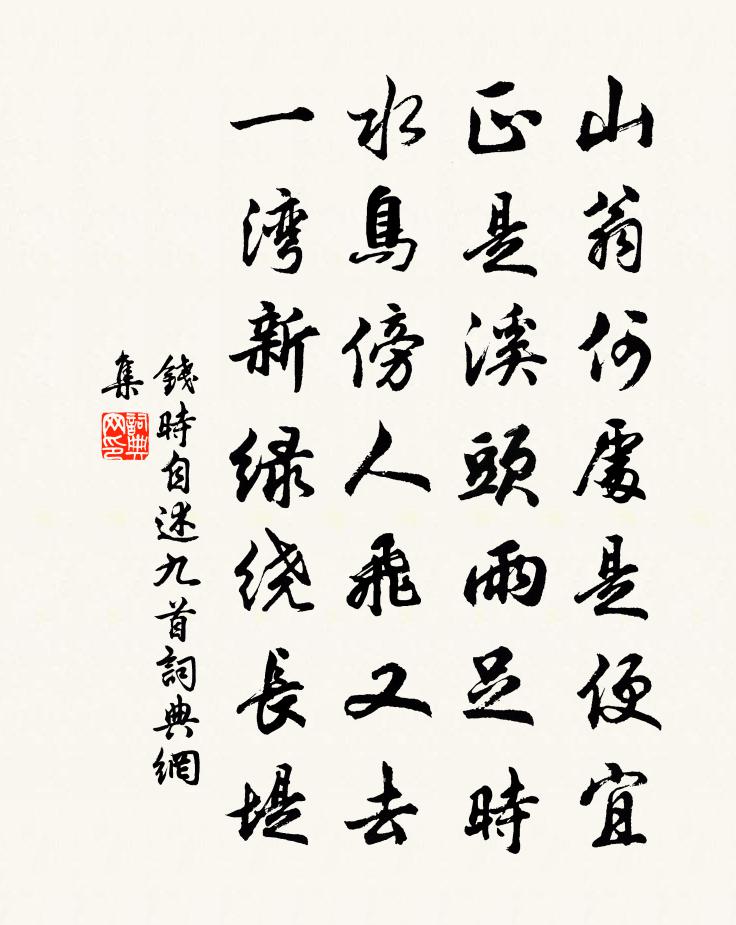 山翁何處是便宜
正是溪頭雨足時
水鳥傍人飛又去
一湾新绿绕長堤
錢時自述九首詞典網
集
詞典网印